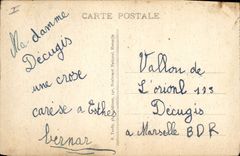 I
CARTE POSTALE
Madamme
Décugis
une crose
carése a Esthes
bernar
Vallon de
L'oriont 193
Décugis
a Marselle B D R